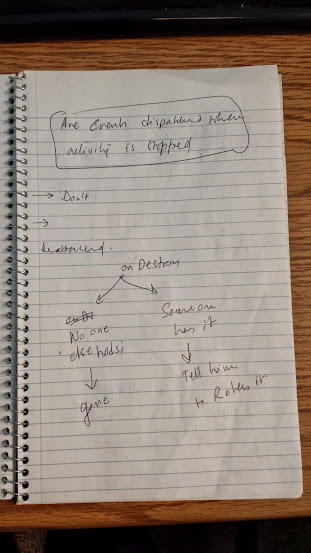 Are Events dispatched when
activity is stopped
→ Don't
→
on Destroy
No one
else holds
Someone
has it
↓
↓
gone
Tell him
to Release it